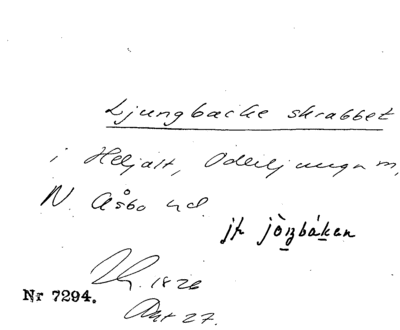 Ljungbacke skrabbet
i Heljalt, Oderljunga m,
N. Åsbo hd.
jfr jò̱ŋbáḵen
1826
Nr 7294.
Akt 27.